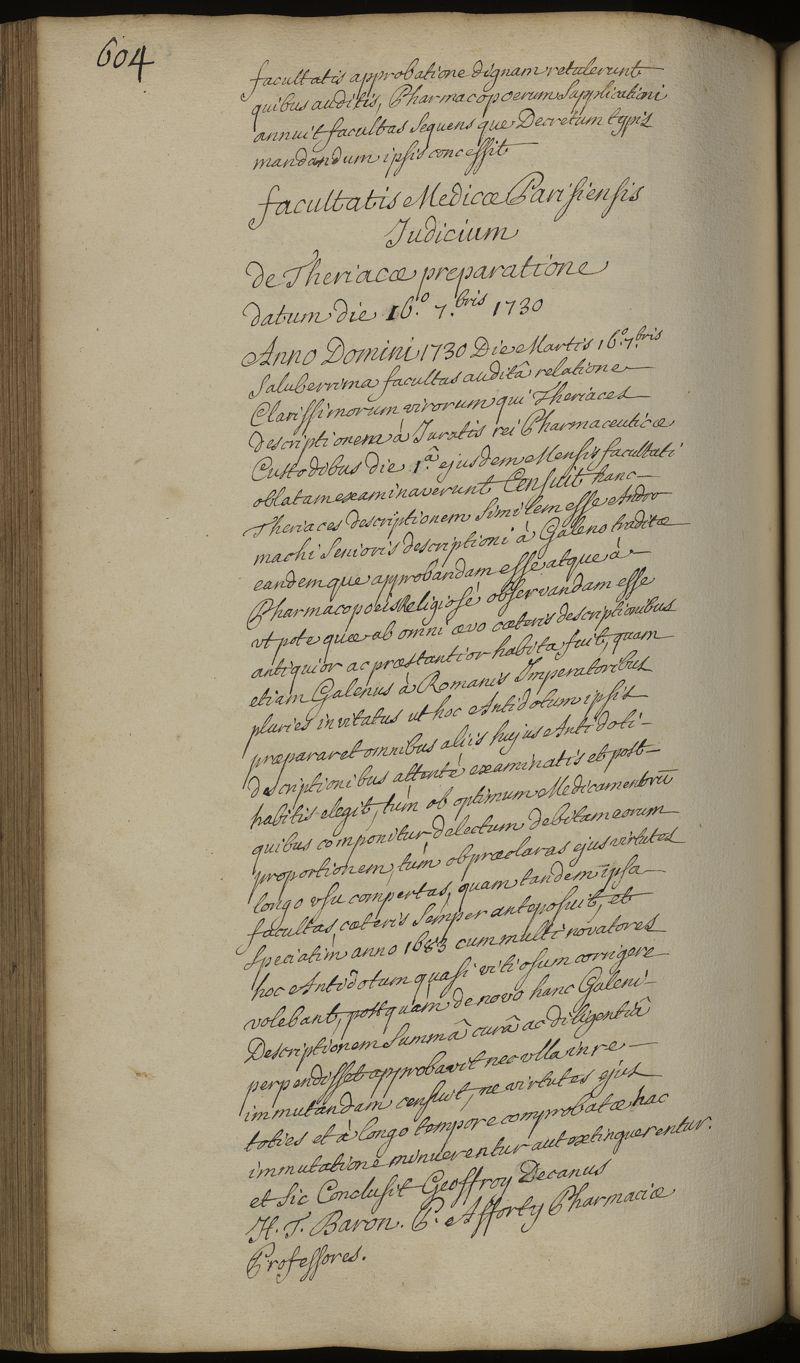 604
facultatis approbatione dignam retulerunt
quibus auditis, Pharmacopoerum supplicationi
annuit facultas sequens que Decretum typis
mandandum ipsis concessit
facultatis Medicæ Parisiensis
Judicium
de Theriacæ preparatione
datum die 16.º 7.bris 1730
Anno Domini 1730 Die Martis 16.º 7.bris
Saluberrima facultas auditâ relatione
Clarissimorum virorum qui Theriaces
descriptionem á Juratis rei Pharmaceuticæ
Custodibus die 1.â ejusdem Mensis facultati
oblatam examinaverunt Censuit hanc
Theriaces descriptionem similem esse Andro
machi Senioris descriptioni á Galeno traditæ
eandemque approbandam esse atque á
Pharmacopoeis Religiosé observandam esse
ut pote quæ ab omni ævo cæteris descriptionibus
antiquior ac præstantior habita fuit, quam
etiam Galenus á Romanis Imperatoribus
pluries invitatus ut hoc Antidotum ipsis
præpararet omnibus aliis hujus Antidoti
descriptionibus attenté examinatis et post
habitis elegit, túm ob optimum Medicamentrū
quibus componitur delectum debitam eorum
proportionem, túm ob præclaras ejus virtutes
longo usu compertas, quam tandem ipsa
facultas cæteris semper anteposuit, et
speciatim anno 1683 cum multi novatores
hoc Antidotum quasi vitiosum corrigere
volebant, postquám de novo hanc Galeni
Descriptionem summâ curâ ac diligentiâ
perpendisset approbavit nec ulla in re
immutandam censuit, ne virtutes ejus
toties et á longo tempore comprobatæ hac
immutatione minuerentur aut extinguerentur.
et sic Conclusit Geoffroy Decanus
H. T. Baron. P. Afforty Pharmaciæ
Professores.